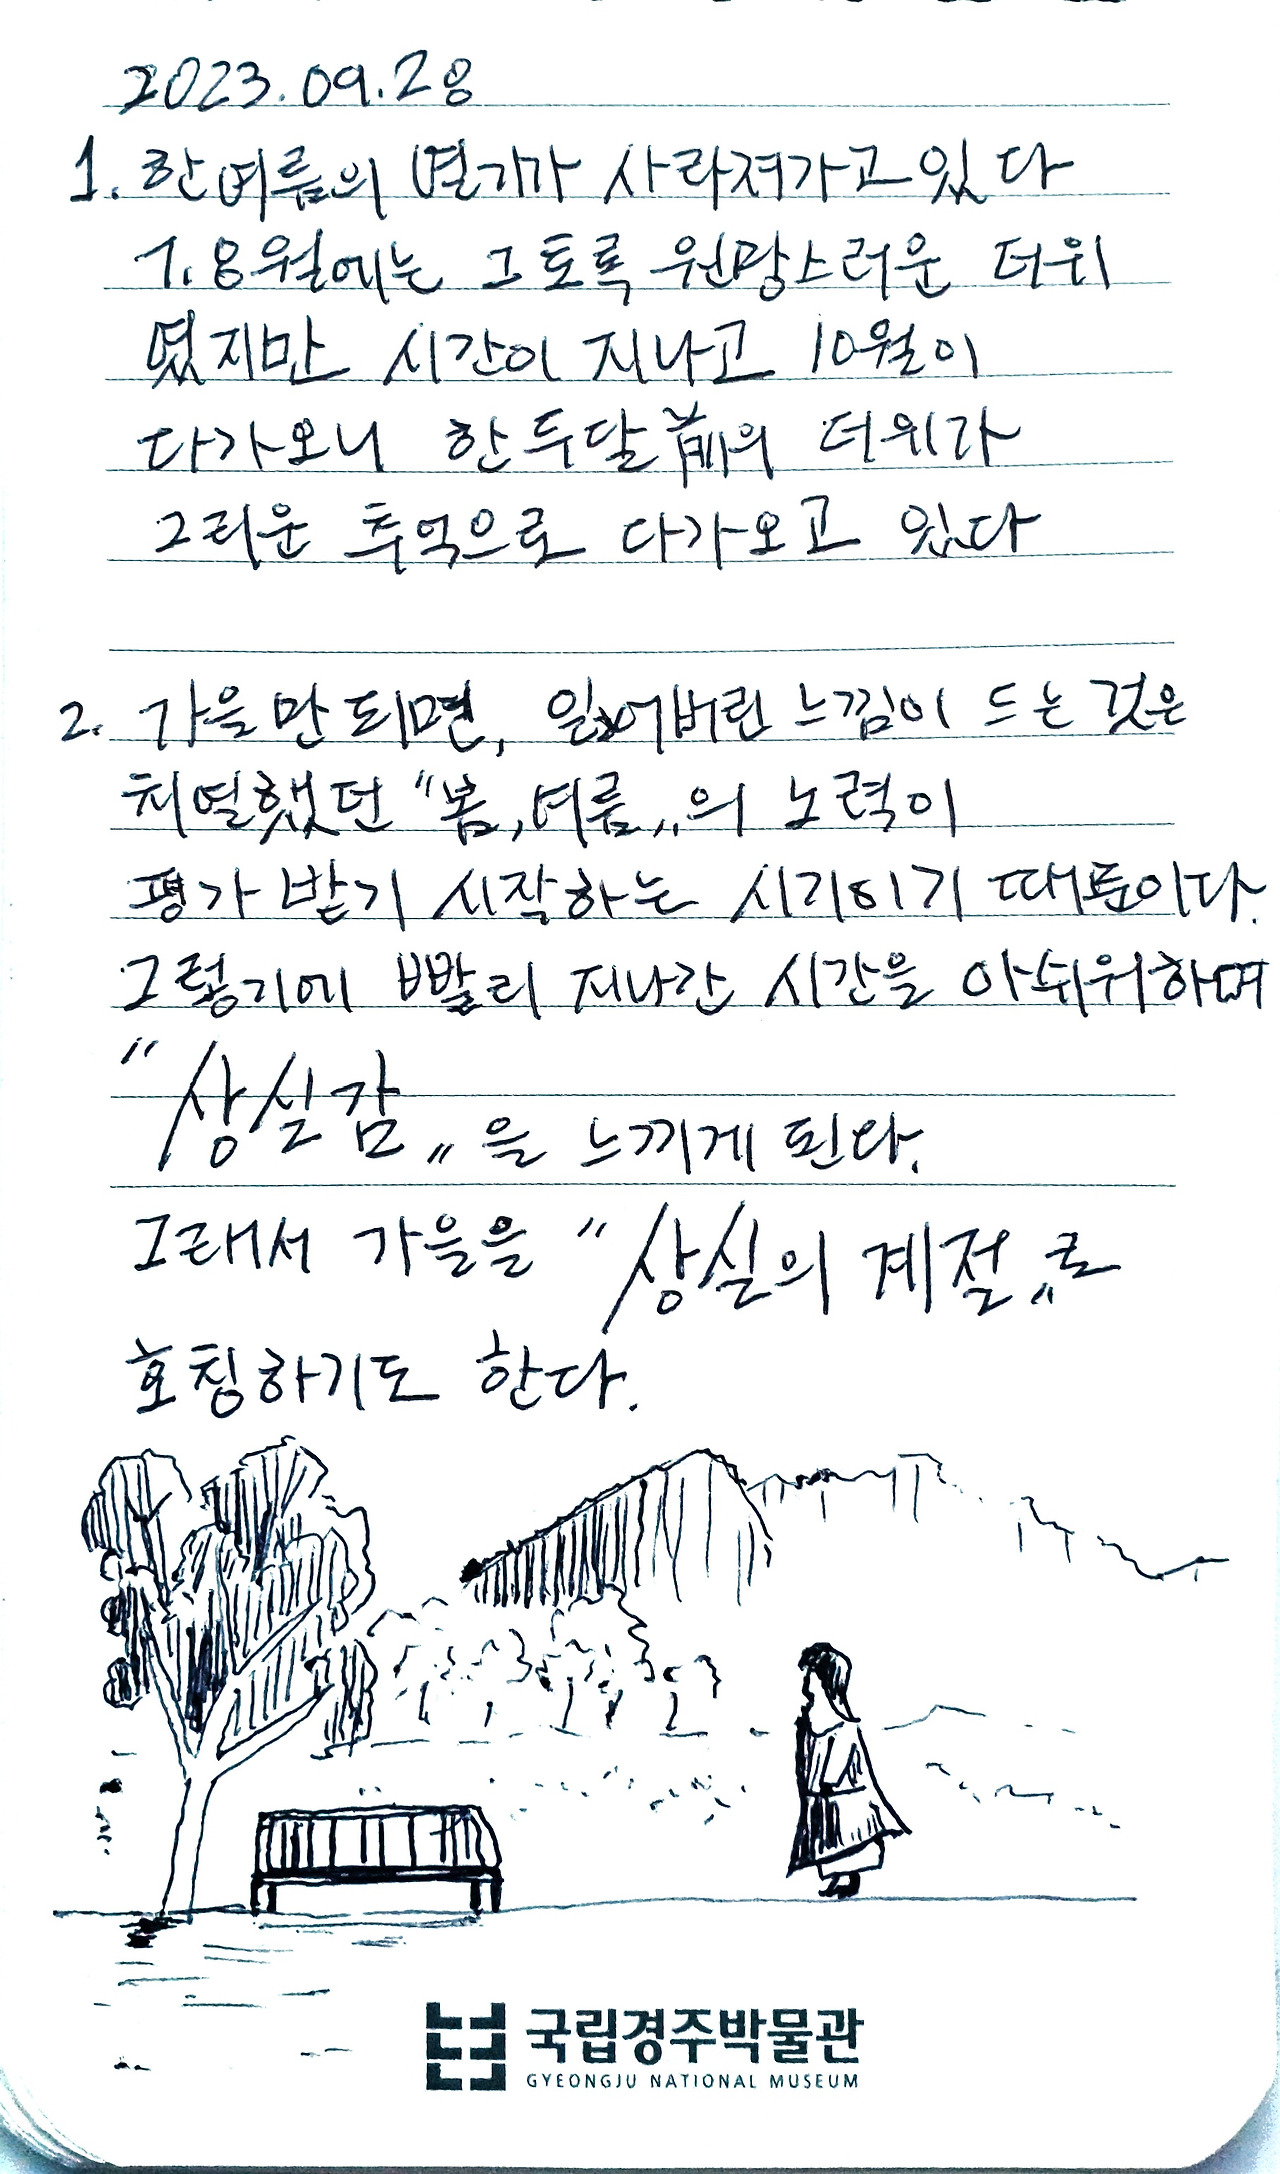 2023.09.28
1. 한여름의 열기가 사라져가고 있다
7.8월에는 그토록 원망스러운 더위
였지만 시간이 지나고 10월이
다가오니 한두달 前의 더위라
그리운 추억으로 다가오고 있다
2. 가을만 되면, 잃어버린 느낌이 드는 것은
치열했던 "봄,여름„의 노력이
평가 받기 시작하는 시기이기 때문이다.
그렇기에 빨리 지나간 시간을 아쉬워하며
"상실감„을 느끼게 된다.
그래서 가을을 "상실의 계절„로
호칭하기도 한다.
국립경주박물관
GYEONGJU NATIONAL MUSEUM